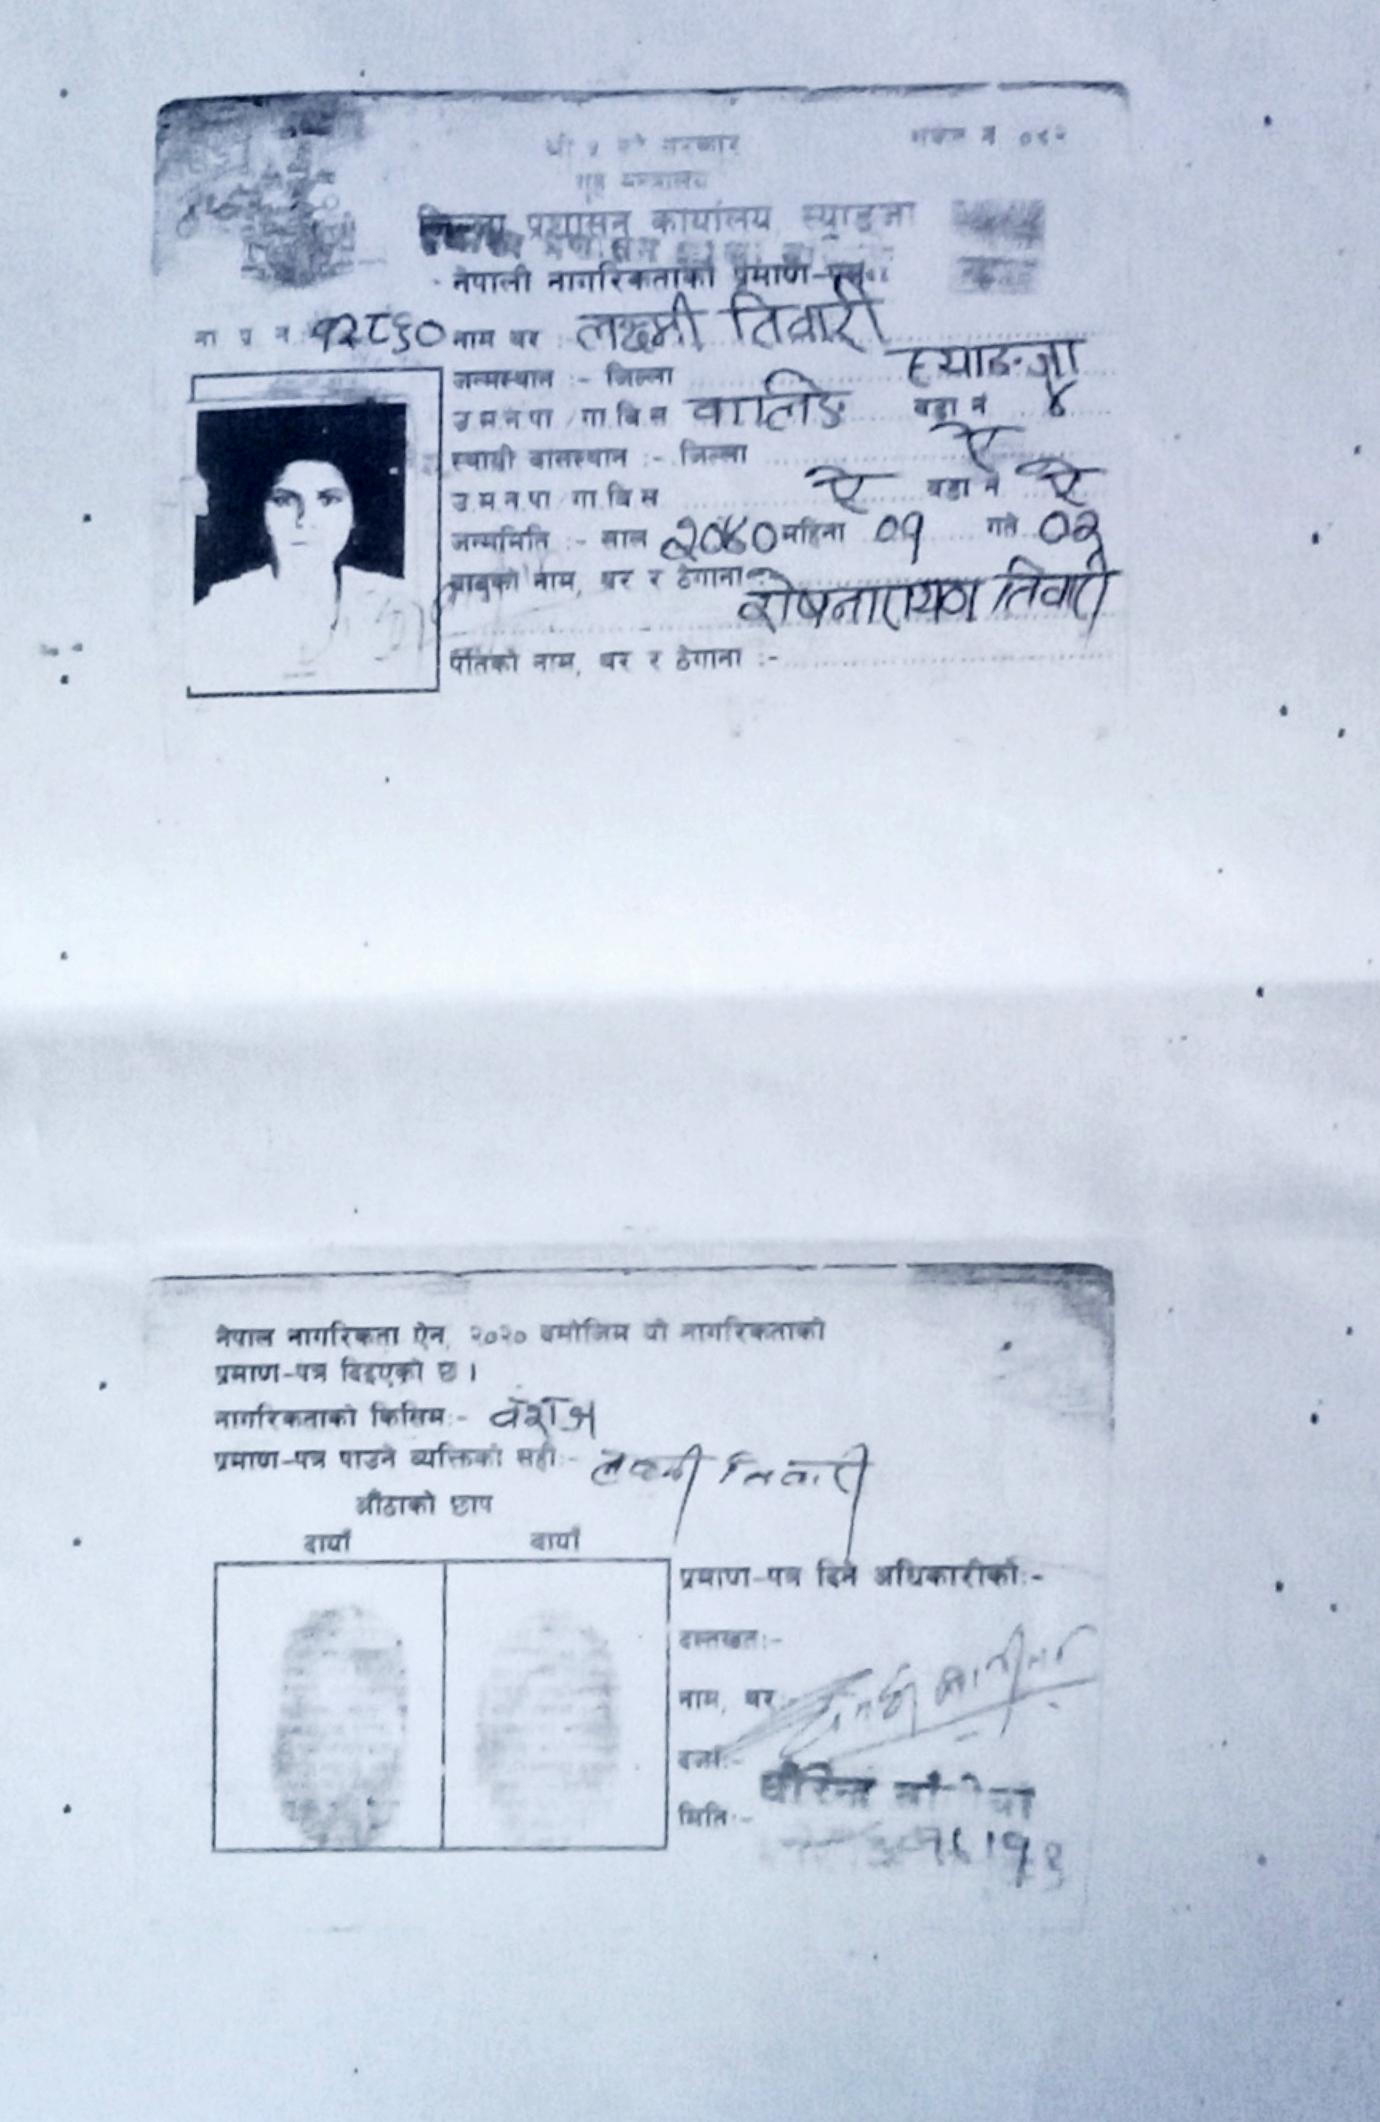 श्री ५ को सरकार
गृह मन्त्रालय
जिल्ला प्रशासन कार्यालय स्याङजा
नेपाली नागरिकताको प्रमाण-पत्र
ना प्र न १२८६० नाम थर : लक्ष्मी तिवारी
जन्मस्थान :- जिल्ला स्याङजा
उ म न पा / गा बि स वालिङ वडा नं ४
स्थायी बासस्थान :- जिल्ला ऐ
उ म न पा गा बि स ऐ वडा नं ऐ
जन्ममिति :- साल २०४० महिना ०१ गते ०२
बाबुको नाम, थर र ठेगाना :-
शेषनारायण तिवारी
पतिको नाम, थर र ठेगाना :-
नेपाल नागरिकता ऐन, २०२० बमोजिम यो नागरिकताको
प्रमाण-पत्र दिइएको छ ।
नागरिकताको किसिम :- वंशज
प्रमाण-पत्र पाउने व्यक्तिको सही :- लक्ष्मी तिवारी
औंठाको छाप
दायाँ बायाँ
प्रमाण-पत्र दिने अधिकारीको :-
दस्तखत :-
नाम, थर :-
दर्जा :-
मिति :-